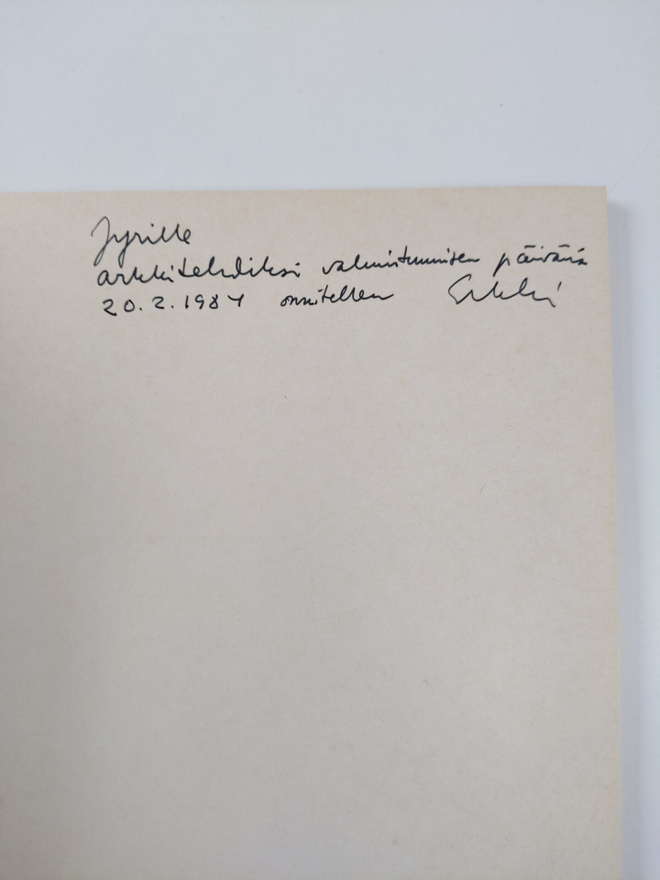 Jyrille
arkkitehdiksi valmistumisen päivänä
20.2.1984 onnitellen Erkki